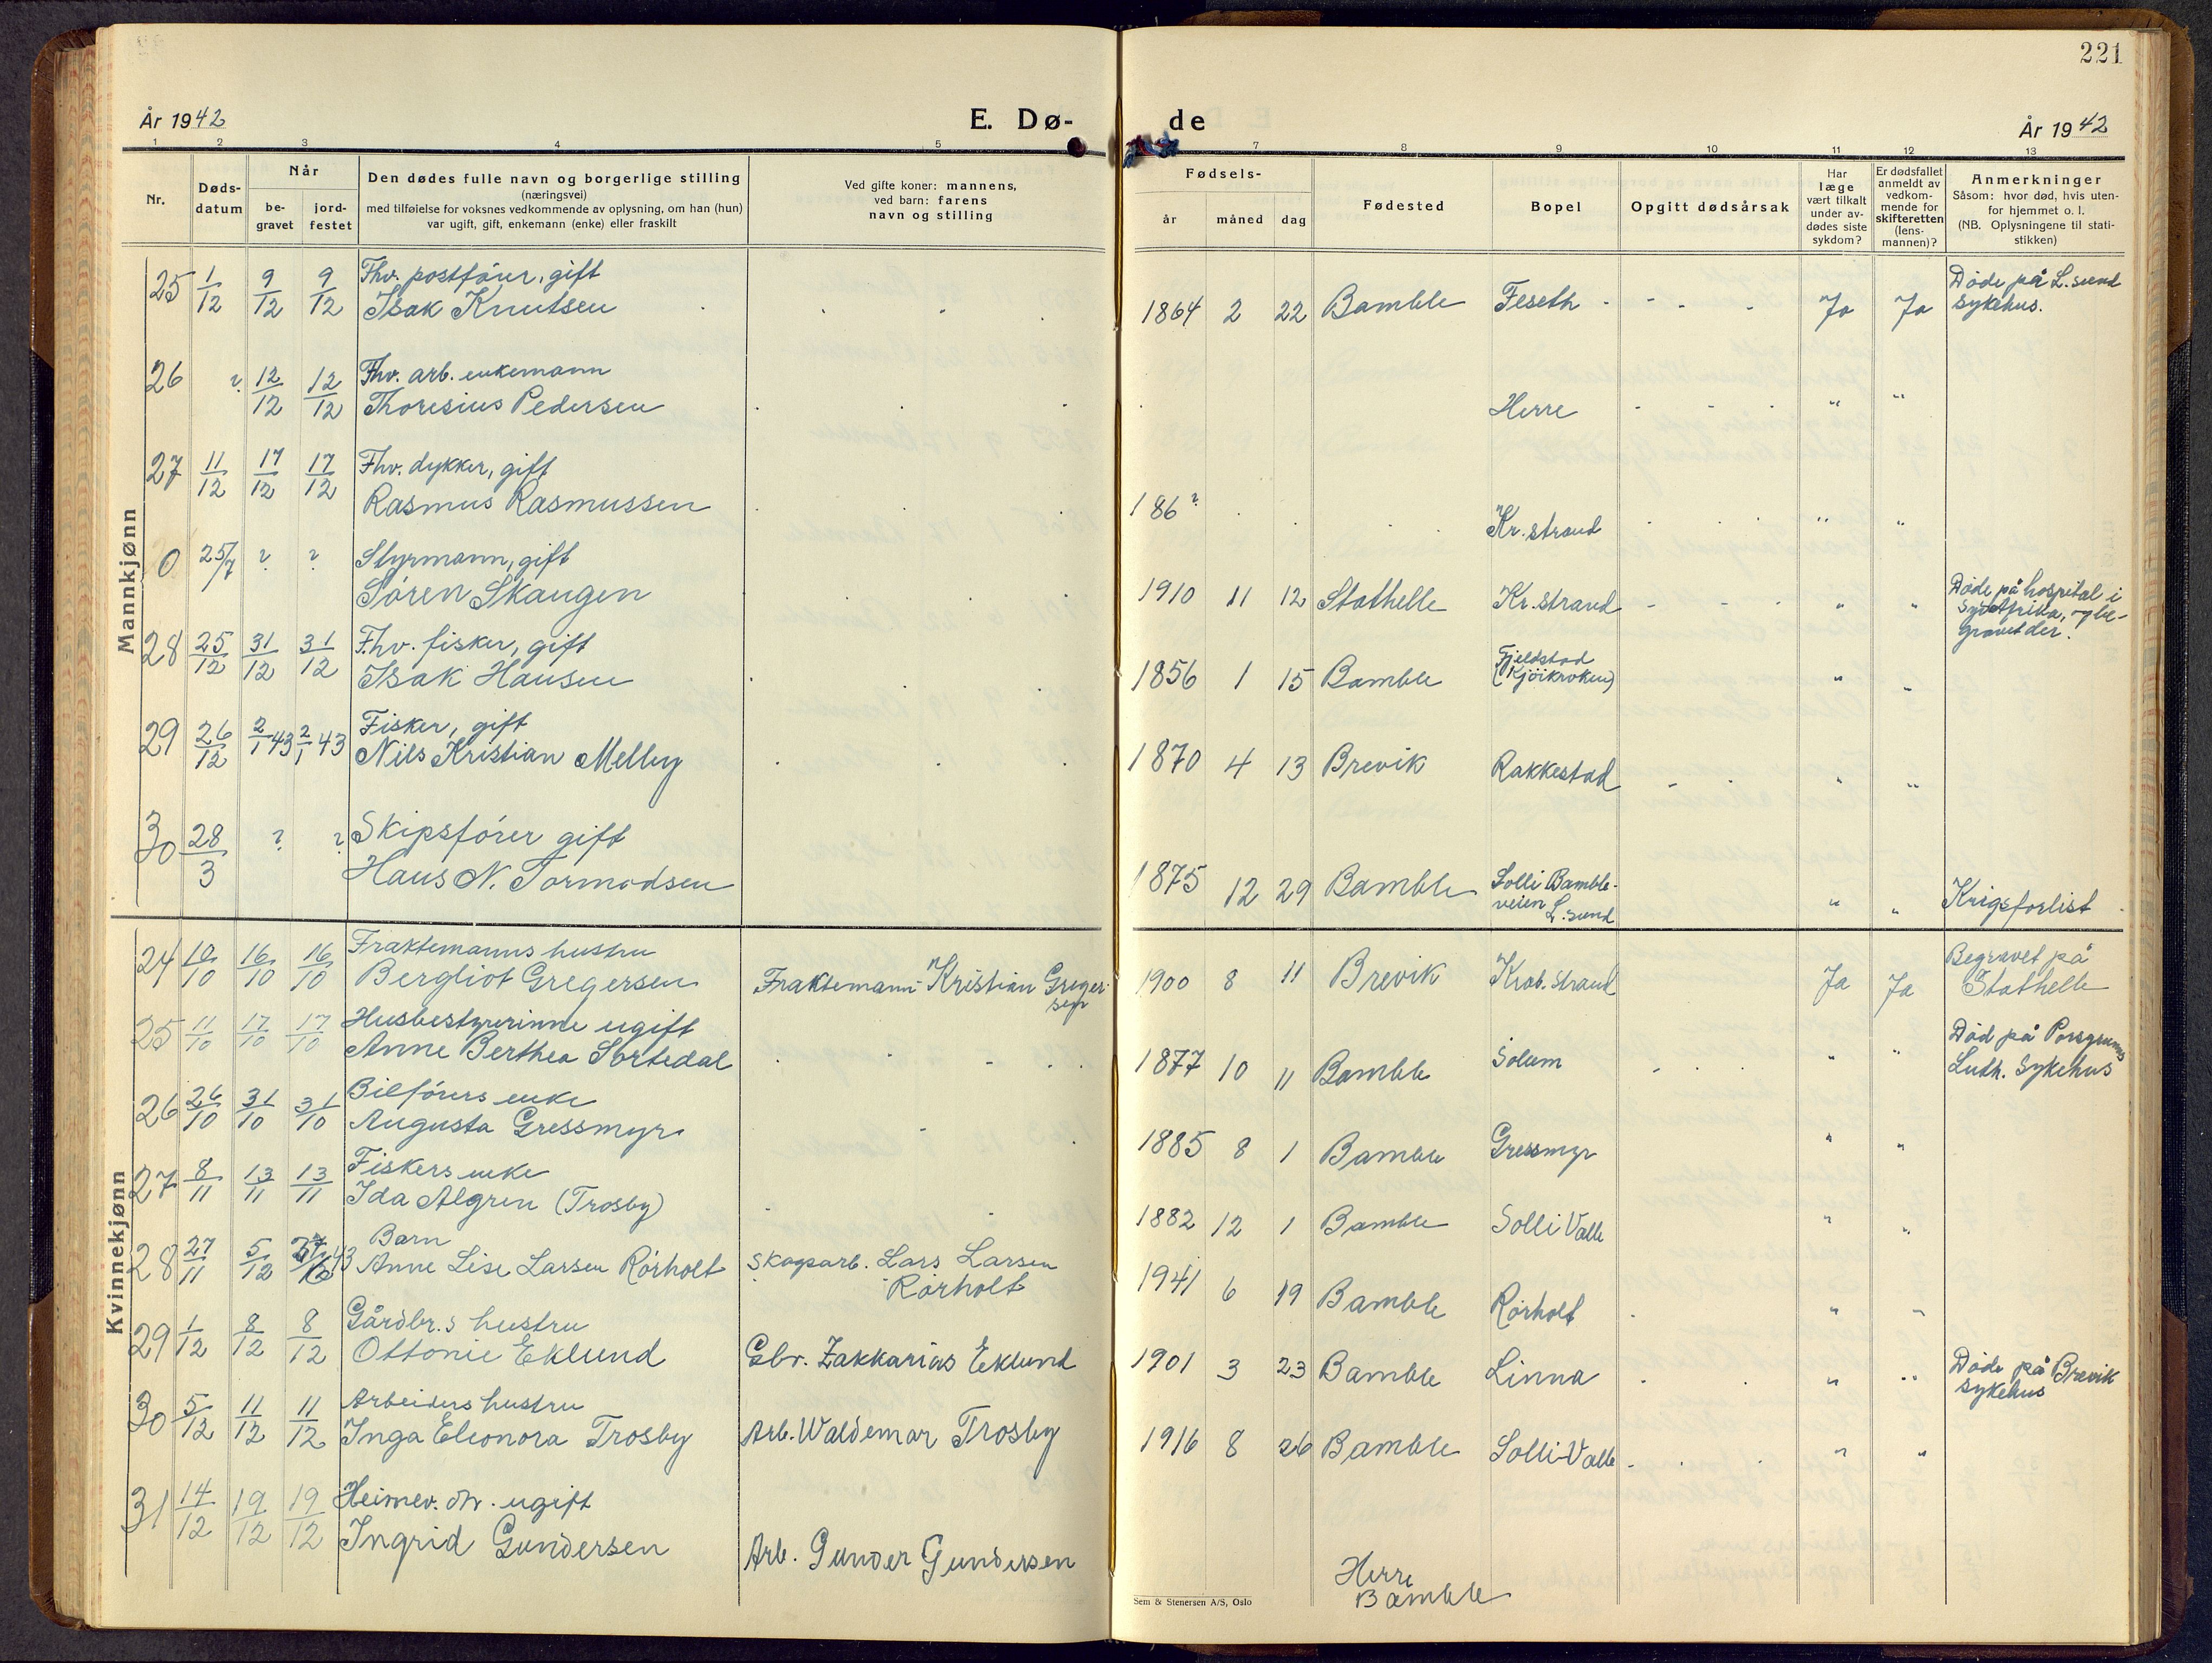 221
År 1942
E. Dø-
de
År 1942
1 2 3 4 5
7 8 9 10 11 12 13
Nr.
Døds-
datum
Når
be-
gravet
jord-
festet
Den dødes fulle navn og borgerlige stilling
(næringsvei)
med tilføielse for voksnes vedkommende av oplysning, om han (hun)
var ugift, gift, enkemann (enke) eller fraskilt
Ved gifte koner: mannens,
ved barn: farens
navn og stilling
Fødsels-
år måned dag
Fødested
Bopel
Opgitt dødsårsak
Har
læge
vært tilkalt
under av-
dødes siste
sykdom?
Er dødsfallet
anmeldt av
vedkom-
mende for
skifteretten
(lens-
mannen)?
Anmerkninger
Såsom: hvor død, hvis uten-
for hjemmet o. l.
(NB. Oplysningene til stati-
stikken)
Mannkjønn
25 1/12 9/12 9/12 Fhv. postfører, gift
Isak Knutsen
1864 2 22 Bamble Feseth - - - Ja Ja
Døde på L.sund
sykehus.
26 ? 12/12 12/12 Fhv. arb. enkemann
Thoresius Pedersen
Herre - - - " "
27 11/12 17/12 17/12 Fhv. dykker, gift
Rasmus Rasmussen
186? Kr.strand " "
0 25/7 ? ? Styrmann, gift
Søren Skaugen
1910 11 12 Stathelle Kr.strand - - - " "
Døde på hospital i
Sydafrika, og be-
gravet der.
28 25/12 31/12 31/12 Fhv. fisker, gift
Isak Hansen
1856 1 15 Bamble Fjeldstad
(Kjøikroken) " "
29 26/12 2/1 43 2/1 43 Fisker, gift
Nils Kristian Melby
1870 4 13 Brevik Rakkestad - - " "
30 28/3 ? ? Skipsfører gift
Hans N. Tormodsen
1875 12 29 Bamble Solli Bamble-
veien
L.sund " " Krigsforlist
Kvinnekjønn
24 10/10 16/10 16/10 Fraktemanns hustru
Bergliot Gregersen Fraktemann Kristian Greger-
sen
1900 8 11 Brevik Krob.strand Ja Ja
Begravet på
Stathelle
25 11/10 17/10 17/10 Husbestyrerinne ugift
Anne Berthea Sortedal
1877 10 11 Bamble Solum " "
Død på Porsgrunns
Luth. Sykehus
26 26/10 31/10 31/10 Bilførers enke
Augusta Gressmyr
1885 8 1 Bamble Gressmyr " "
27 8/11 13/11 13/11 Fiskers enke
Ida Algren (Trosby)
1882 12 1 Bamble Solli Valle " "
28 27/11 5/12 43 Barn
Anne Lise Larsen Rørholt Skogsarb. Lars Larsen
Rørholt
1941 6 19 Bamble Rørholt " "
29 1/12 8/12 8/12 Gårdbr.s hustru
Ottonie Eklund Gbr. Zakkarias Eklund
1901 3 23 Bamble Linna " "
Døde på Brevik
sykehus
30 5/12 11/12 11/12 Arbeiders hustru
Inga Eleonora Trosby Arb. Waldemar Trosby
1916 8 26 Bamble Solli-Valle " "
31 14/12 19/12 19/12 Heimev. dtr. ugift
Ingrid Gundersen Arb. Gunder Gundersen
Herre
Bamble
Sem & Stenersen A/S, Oslo